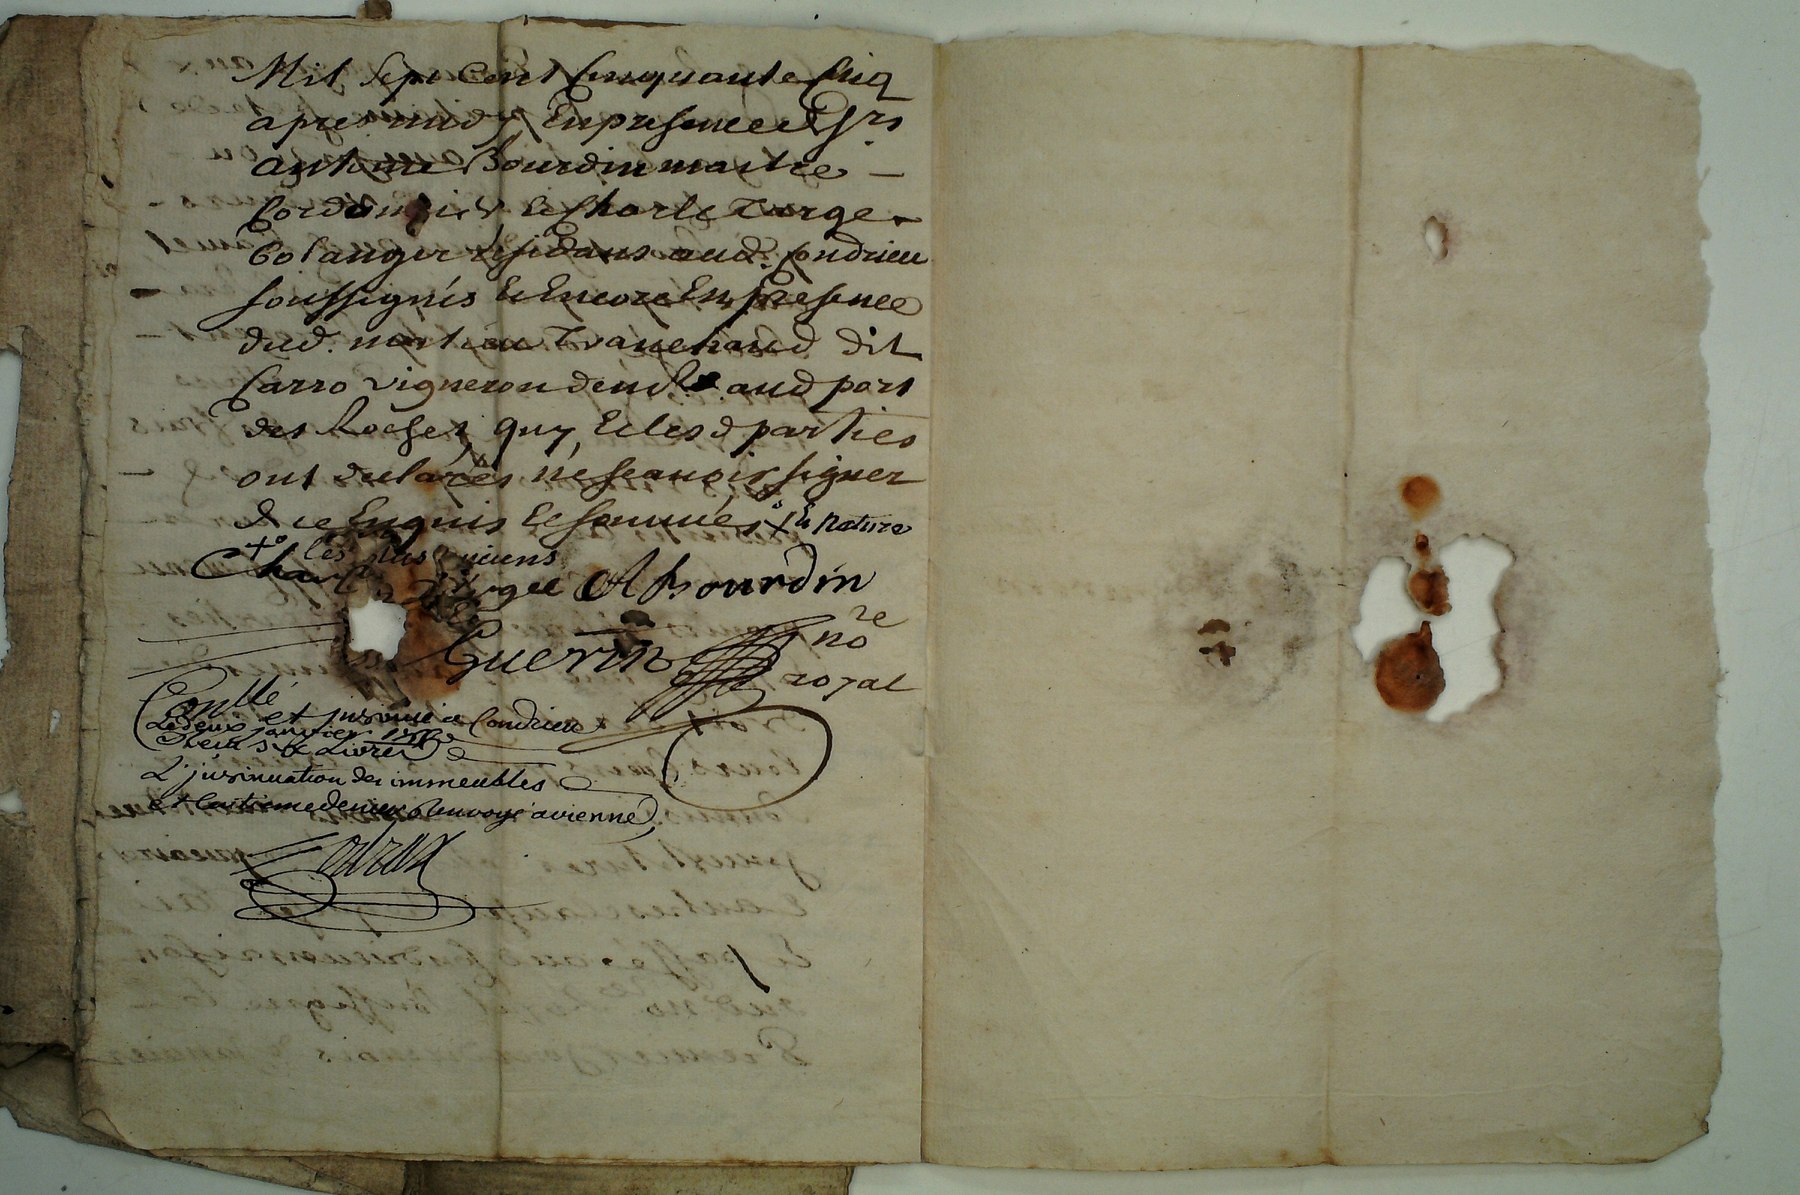 Mil Sept Cent Cinquante Cinq
apres midy En presence de Srs
antoine Bourdin maitre
Cordonnier & Charle Turge
bolanger residans aud. Condrieu
soussignés & Encore En presence
dud. martin Tranchand dit
Carro vigneron demt. aud port
des Roches, quy, & les d parties
ont declarés ne scavoir signer
de ce Enquis & sommés x En Nature
x les plus enciens
Charle Turge A Bourdin
Guerin nore
royal
Conllé et insinué a Condrieu
Le deux janvier
Six Livres
L'insinuation des immeubles
et Centieme denier Renvoyé a vienne